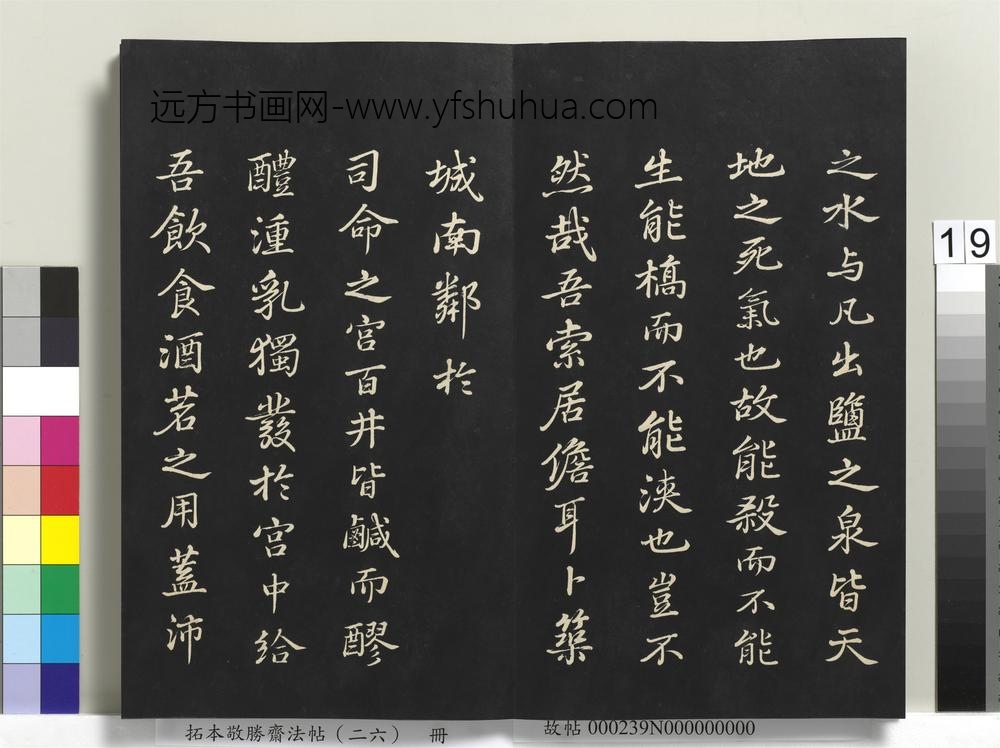 远方书画网-www.yfshuhua.com
之水与凡出鹽之泉皆天
地之死氣也故能殺而不能
生能槁而不能浹也豈不
然哉吾索居儋耳卜築
城南鄰於
司命之宮百井皆鹹而醪
醴湩乳獨發於宮中給
吾飲食酒茗之用蓋沛
19
拓本敬勝齋法帖（二六） 冊
故帖 000239N000000000